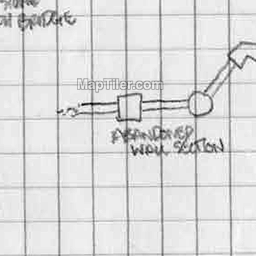 STONE
BRIDGE
MapTiler.com
ABANDONED
WALL SECTION